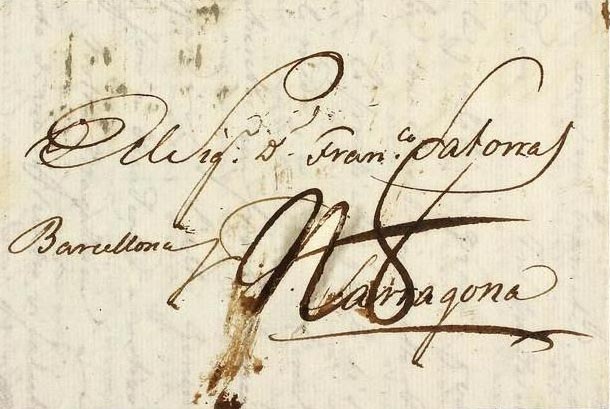 Al Sig.r D.n Fran.co Satorras
Barcellona
Tarragona